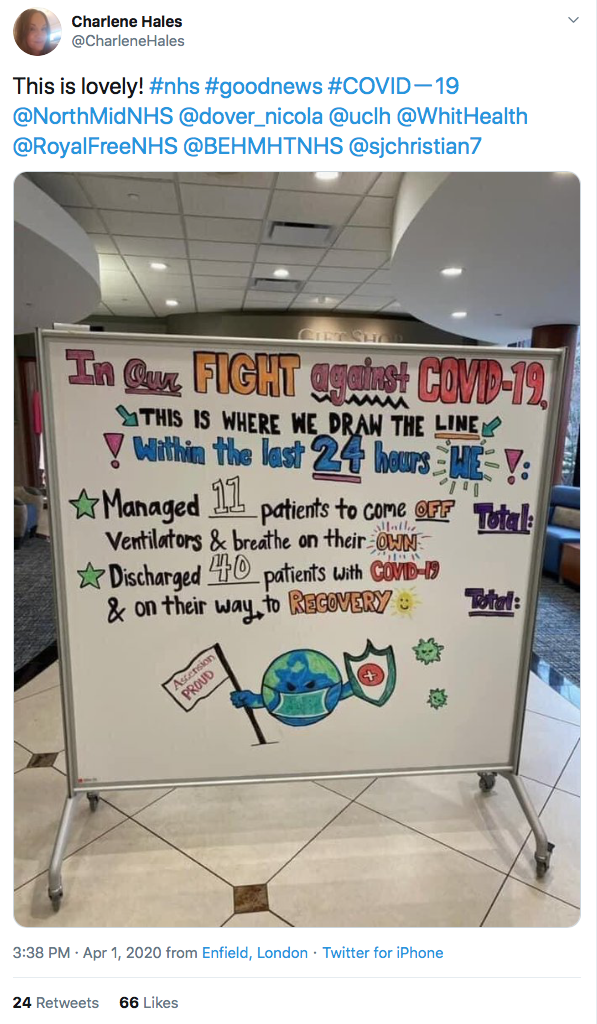 Charlene Hales
@CharleneHales
This is lovely! #nhs #goodnews #COVID—19
@NorthMidNHS @dover_nicola @uclh @WhitHealth
@RoyalFreeNHS @BEHMHTNHS @sjchristian7
GIFT SHOP
In Our FIGHT against COVID-19,
THIS IS WHERE WE DRAW THE LINE
! Within the last 24 hours WE !:
Managed 11 patients to come OFF Total:
Ventilators & breathe on their OWN
Discharged 40 patients with COVID-19
& on their way to RECOVERY Total:
Ascension
PROUD
3:38 PM · Apr 1, 2020 from Enfield, London · Twitter for iPhone
24 Retweets 66 Likes